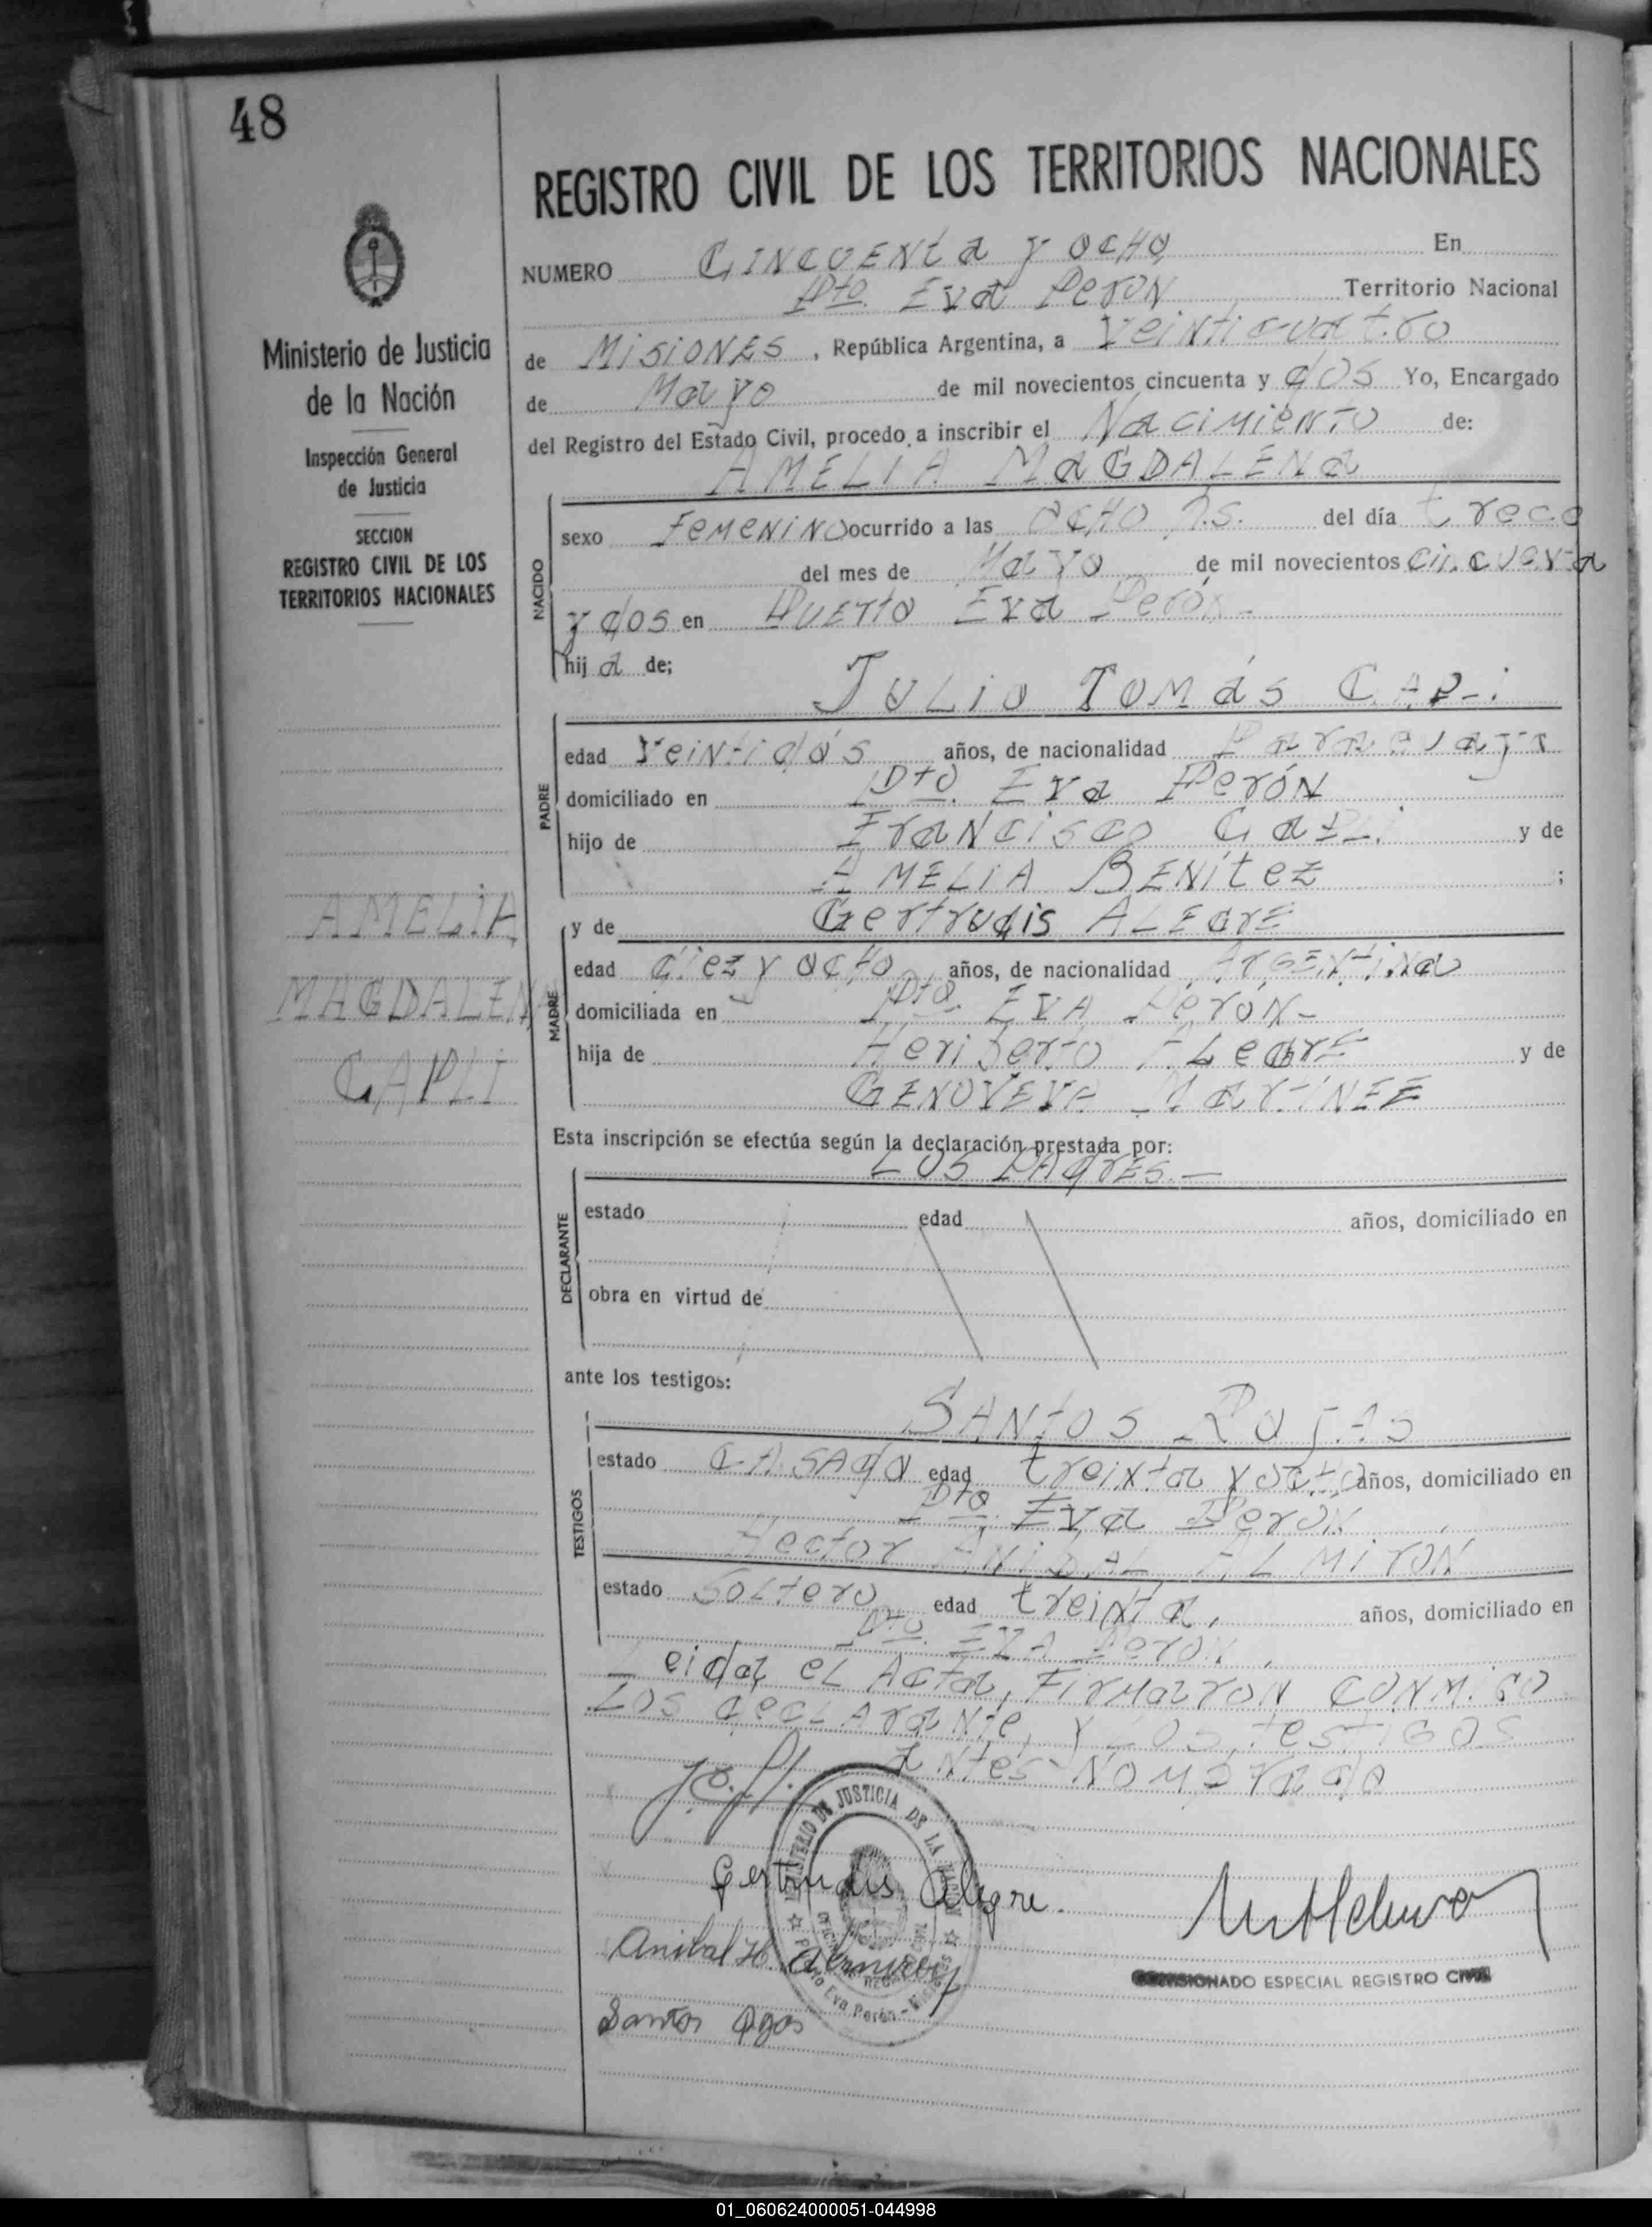 48
Ministerio de Justicia
de la Nación
Inspección General
de Justicia
SECCION
REGISTRO CIVIL DE LOS
TERRITORIOS NACIONALES
AMELIA
MAGDALENA
CAPLI
REGISTRO CIVIL DE LOS TERRITORIOS NACIONALES
NUMERO CINCUENta y OCHO En
Pto. Eva PerON Territorio Nacional
de MiSiONES, República Argentina, a Veinticuatro
de Mayo de mil novecientos cincuenta y dos Yo, Encargado
del Registro del Estado Civil, procedo a inscribir el NaciMiento de:
AMELIA MaGDALENa
NACIDO
sexo FeMENiNO ocurrido a las OCHO hs. del día trece
del mes de Mayo de mil novecientos cincuenta
y dos en PUErto Eva Perón.-
hija de;
JULiO TOMás CAPLi
PADRE
edad VeiNtidós años, de nacionalidad Paraguaya
domiciliado en Pto. Eva PerÓN
hijo de FraNCisco CaPLi y de
AMELiA BENítez ;
MADRE
y de Gertrudis ALEGRE
edad diez y ocho años, de nacionalidad ArGENtiNa
domiciliada en Pto. EVA PerON.-
hija de Heriberto ALeGrE y de
GENOVEVA MartiNEZ
Esta inscripción se efectúa según la declaración prestada por:
LOS PAdrES.-
DECLARANTE
estado edad años, domiciliado en
obra en virtud de
ante los testigos:
TESTIGOS
SANtOS ROjAS
estado CASAdO edad treinta y ocho años, domiciliado en
Pto. Eva PerON
Hector ANiBAL ALMiRON
estado SOLterO edad treiNta, años, domiciliado en
Pto. EVA PerON,
Leida eL Acta, FirMaron CONMiGO
LOS decLAraNte, y LOS testiGOS
aNtes NOMBradO
Gertrudis Alegre.
Anibal H. Almiron
Santos
MINISTERIO DE JUSTICIA DE LA NACION
Eva Perón - Misiones
COMISIONADO ESPECIAL REGISTRO CIVIL
01_060624000051-044998